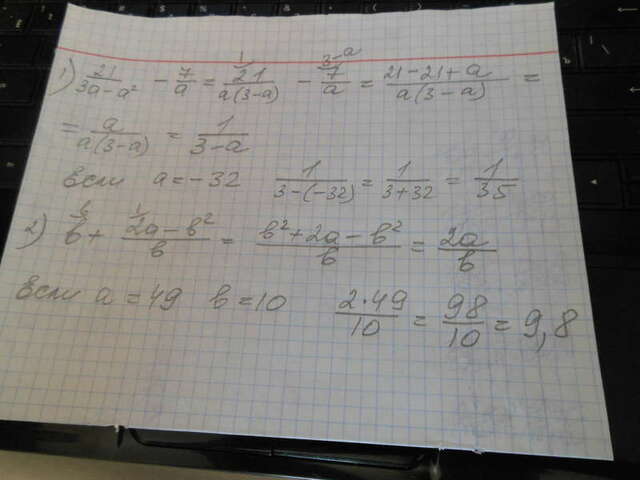 1) 21/(3a-a²) - 7/a = 21/(a(3-a)) - 7/a = (21-21+a)/(a(3-a)) =
= a/(a(3-a)) = 1/(3-a)
если a=-32 1/(3-(-32)) = 1/(3+32) = 1/35
2) b + (2a-b²)/b = (b²+2a-b²)/b = 2a/b
Если a=49 b=10 (2·49)/10 = 98/10 = 9,8